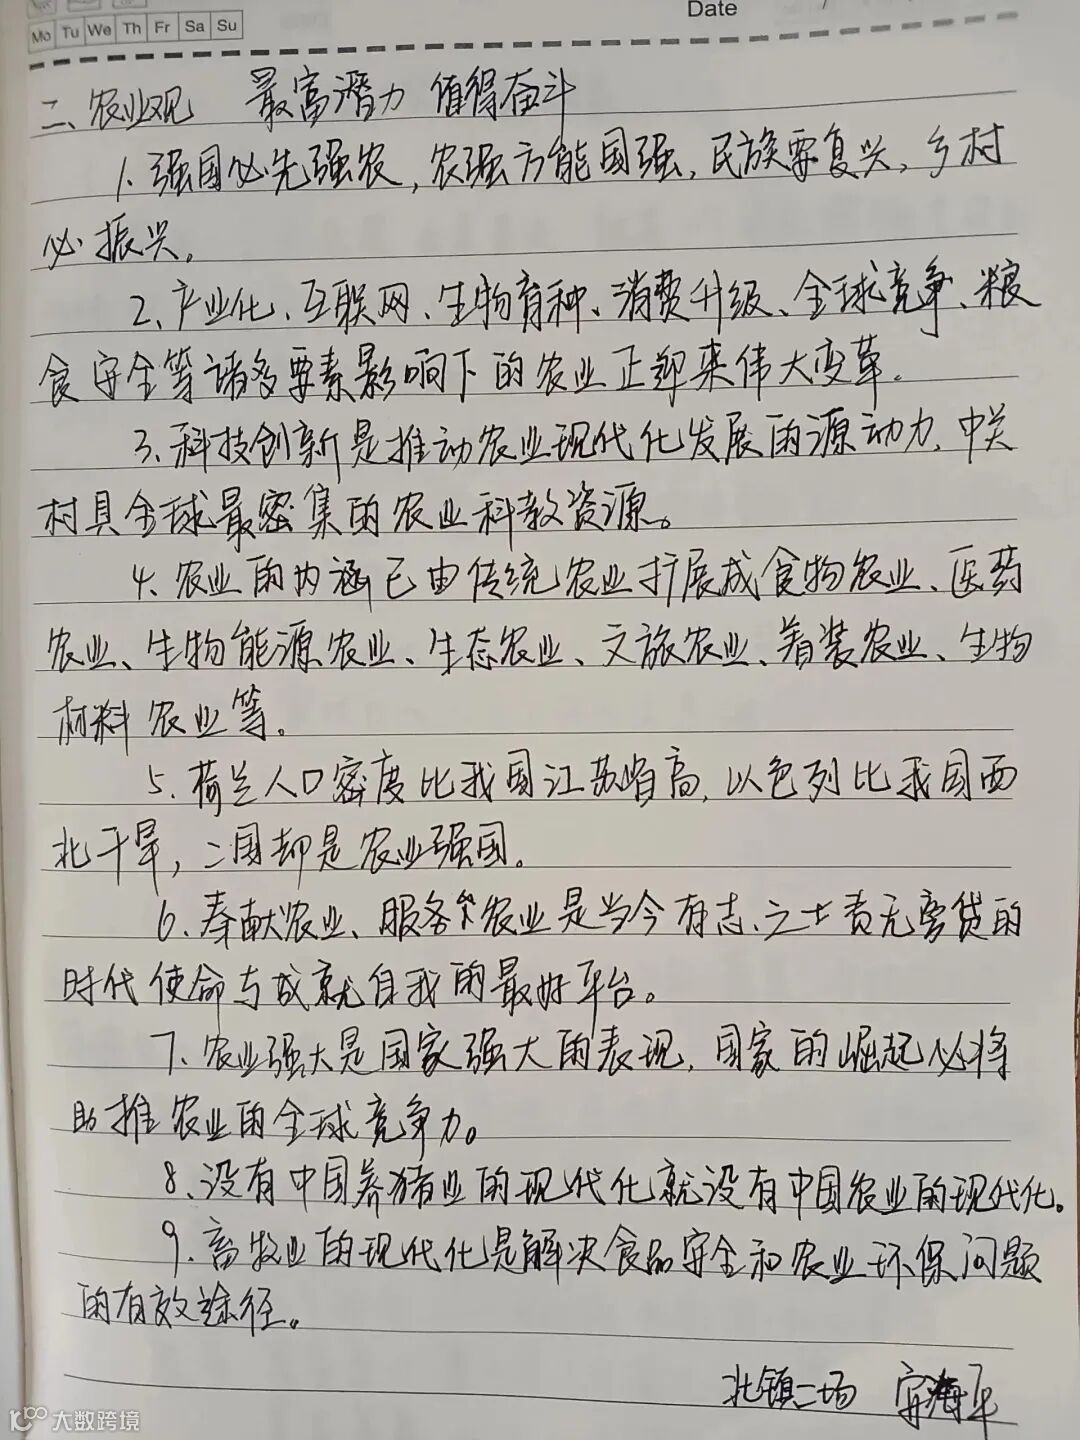 Date /
Mo Tu We Th Fr Sa Su
二、农业观 最富潜力 值得奋斗
1、强国必先强农,农强方能国强,民族要复兴,乡村
必振兴。
2、产业化、互联网、生物育种、消费升级、全球竞争、粮
食安全等诸多要素影响下的农业正迎来伟大变革。
3、科技创新是推动农业现代化发展的源动力,中关
村具全球最密集的农业科教资源。
4、农业的内涵已由传统农业扩展成食物农业、医药
农业、生物能源农业、生态农业、文旅农业、着装农业、生物
材料农业等。
5、荷兰人口密度比我国江苏省高,以色列比我国西
北干旱,二国却是农业强国。
6、奉献农业、服务农业是当今有志之士责无旁贷的
时代使命与成就自我的最好平台。
7、农业强大是国家强大的表现,国家的崛起必将
助推农业的全球竞争力。
8、没有中国养猪业的现代化就没有中国农业的现代化。
9、畜牧业的现代化是解决食品安全和农业环保问题
的有效途径。
北镇二场 海平
大数跨境